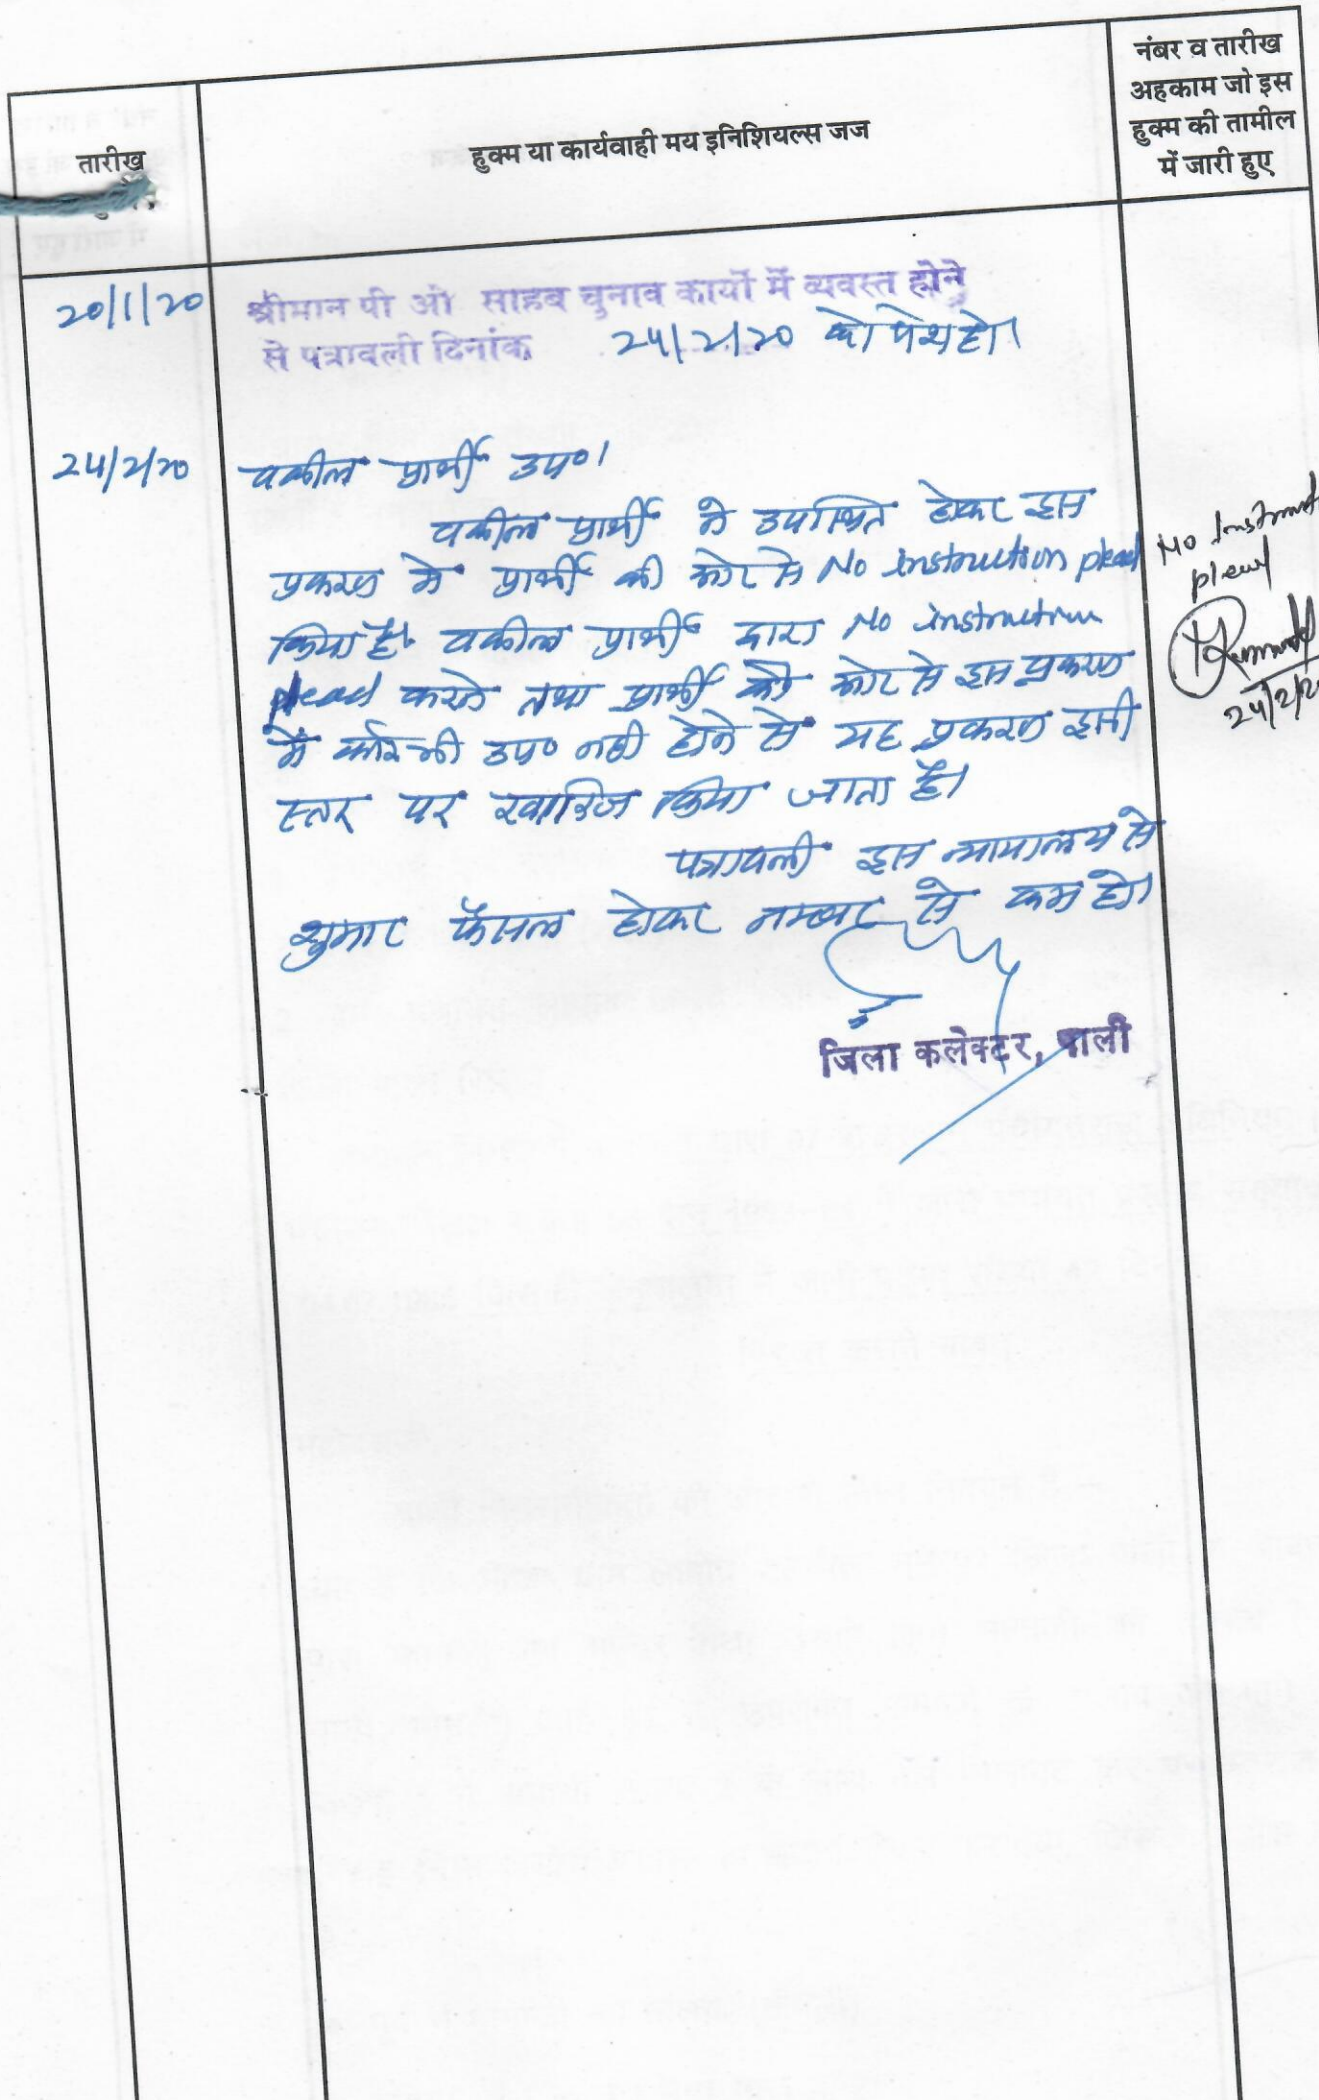 तारीख
हुक्म या कार्यवाही मय इनिशियल्स जज
नंबर व तारीख
अहकाम जो इस
हुक्म की तामील
में जारी हुए
20/1/20 श्रीमान पी ओ साहब चुनाव कार्यो में व्यवस्त होने
से पत्रावली दिनांक 24/2/20 को पेश हो।
24/2/20 वकील प्रार्थी उप०।
वकील प्रार्थी ने उपस्थित होकर इस
प्रकरण में प्रार्थी की ओर से No instruction plead
किया है। वकील प्रार्थी द्वारा No instruction
plead करने तथा प्रार्थी की ओर से इस प्रकरण
में कोई भी उप० नही होने से यह प्रकरण इसी
स्तर पर खारिज किया जाता है।
पत्रावली इस न्यायालय से
शुमार फैसल होकर नम्बर से कम हो।
No Instruct
plead
24/2/20
जिला कलेक्टर, पाली